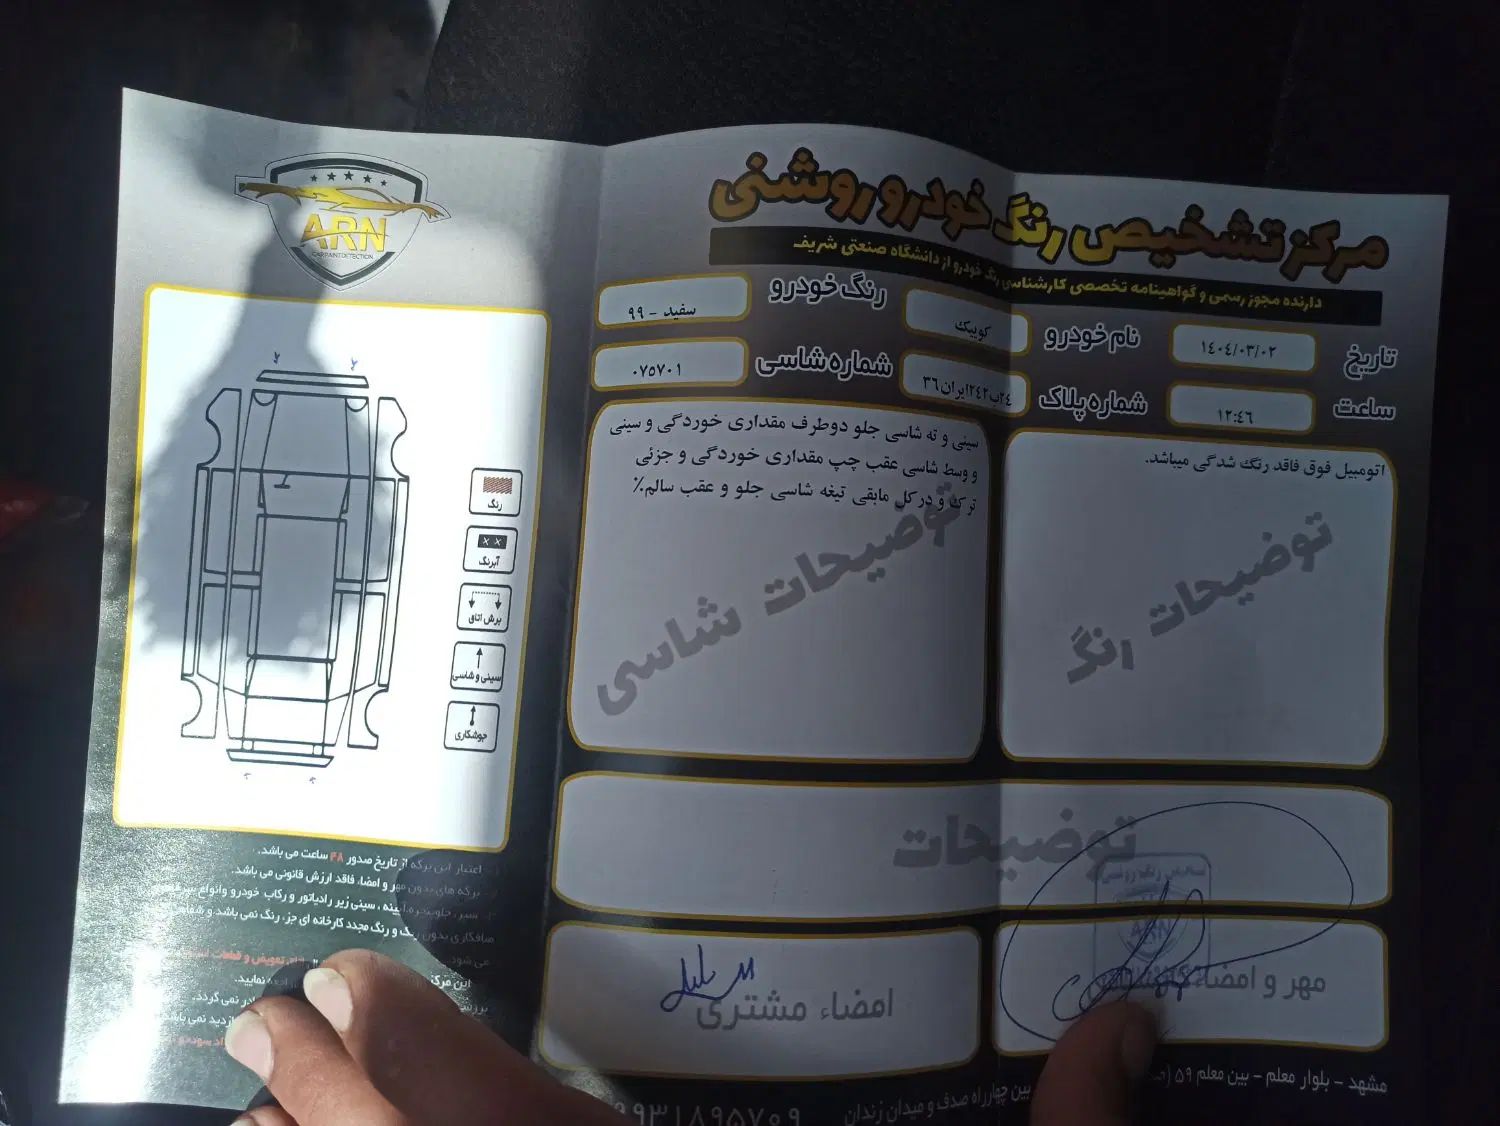 مرکز تشخیص رنگ خودرو روشنی
دارنده مجوز رسمی و گواهینامه تخصصی کارشناسی رنگ خودرو از دانشگاه صنعتی شریف
تاریخ
۱۴۰۴/۰۳/۰۲
نام خودرو
کوییک
رنگ خودرو
سفید - ۹۹
ساعت
۱۲:۴۶
شماره پلاک
۲۴ب۲۴۲ایران۳۶
شماره شاسی
۰۷۵۷۰۱
اتومبیل فوق فاقد رنگ شدگی میباشد.
توضیحات رنگ
سینی و ته شاسی جلو دوطرف مقداری خوردگی و سینی
و وسط شاسی عقب چپ مقداری خوردگی و جزئی
ترک و در کل مابقی تیغه شاسی جلو و عقب سالم٪
توضیحات شاسی
توضیحات
مهر و امضاء
ARN
امضاء مشتری
ARN
CAR PAINT DETECTION
رنگ
× ×
آبرنگ
برش اتاق
سینی و شاسی
جوشکاری
اعتبار این برگه از تاریخ صدور ۴۸ ساعت می باشد.
برگه های بدون مهر و امضاء، فاقد ارزش قانونی می باشد.
سپر، جلو پنجره، آیینه ، سینی زیر رادیاتور و رکاب خودرو وانواع
صافکاری بدون رنگ و رنگ مجدد کارخانه ای جزء رنگ نمی باشد.
می شود. تعویض و قطعات
این مرکز نمایید.
نمی گردد.
بازدید نمی باشد
مشهد - بلوار معلم - بین معلم ۵۹
بین چهارراه صدف و میدان زندان
۹۹۳۱۸۹۵۷۰۹